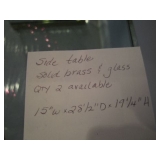 Side table
Solid brass & glass
Qty 2 available
15"W x 28 1/2"D x 19 1/4" H